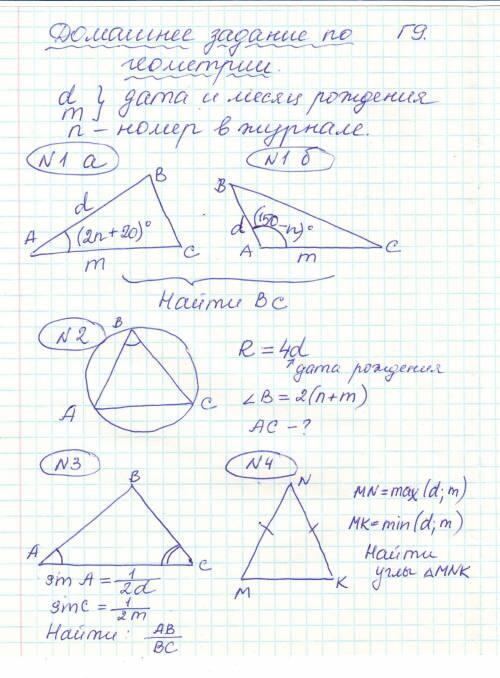 Домашнее задание по Г9.
геометрии.
d
m } дата и месяц рождения
n – номер в журнале.
N1 а
N1 б
B
d
A
(2n+20)°
m
C
B
d
(150-n)°
A
m
C
Найти BC
N2
B
A
C
R = 4d
дата рождения
∠B = 2(n+m)
AC – ?
N3
B
A
C
sin A = 1/2d
sin C = 1/2m
Найти: AB/BC
N4
N
M
K
MN = max(d; m)
MK = min(d; m)
Найти
углы ΔMNK